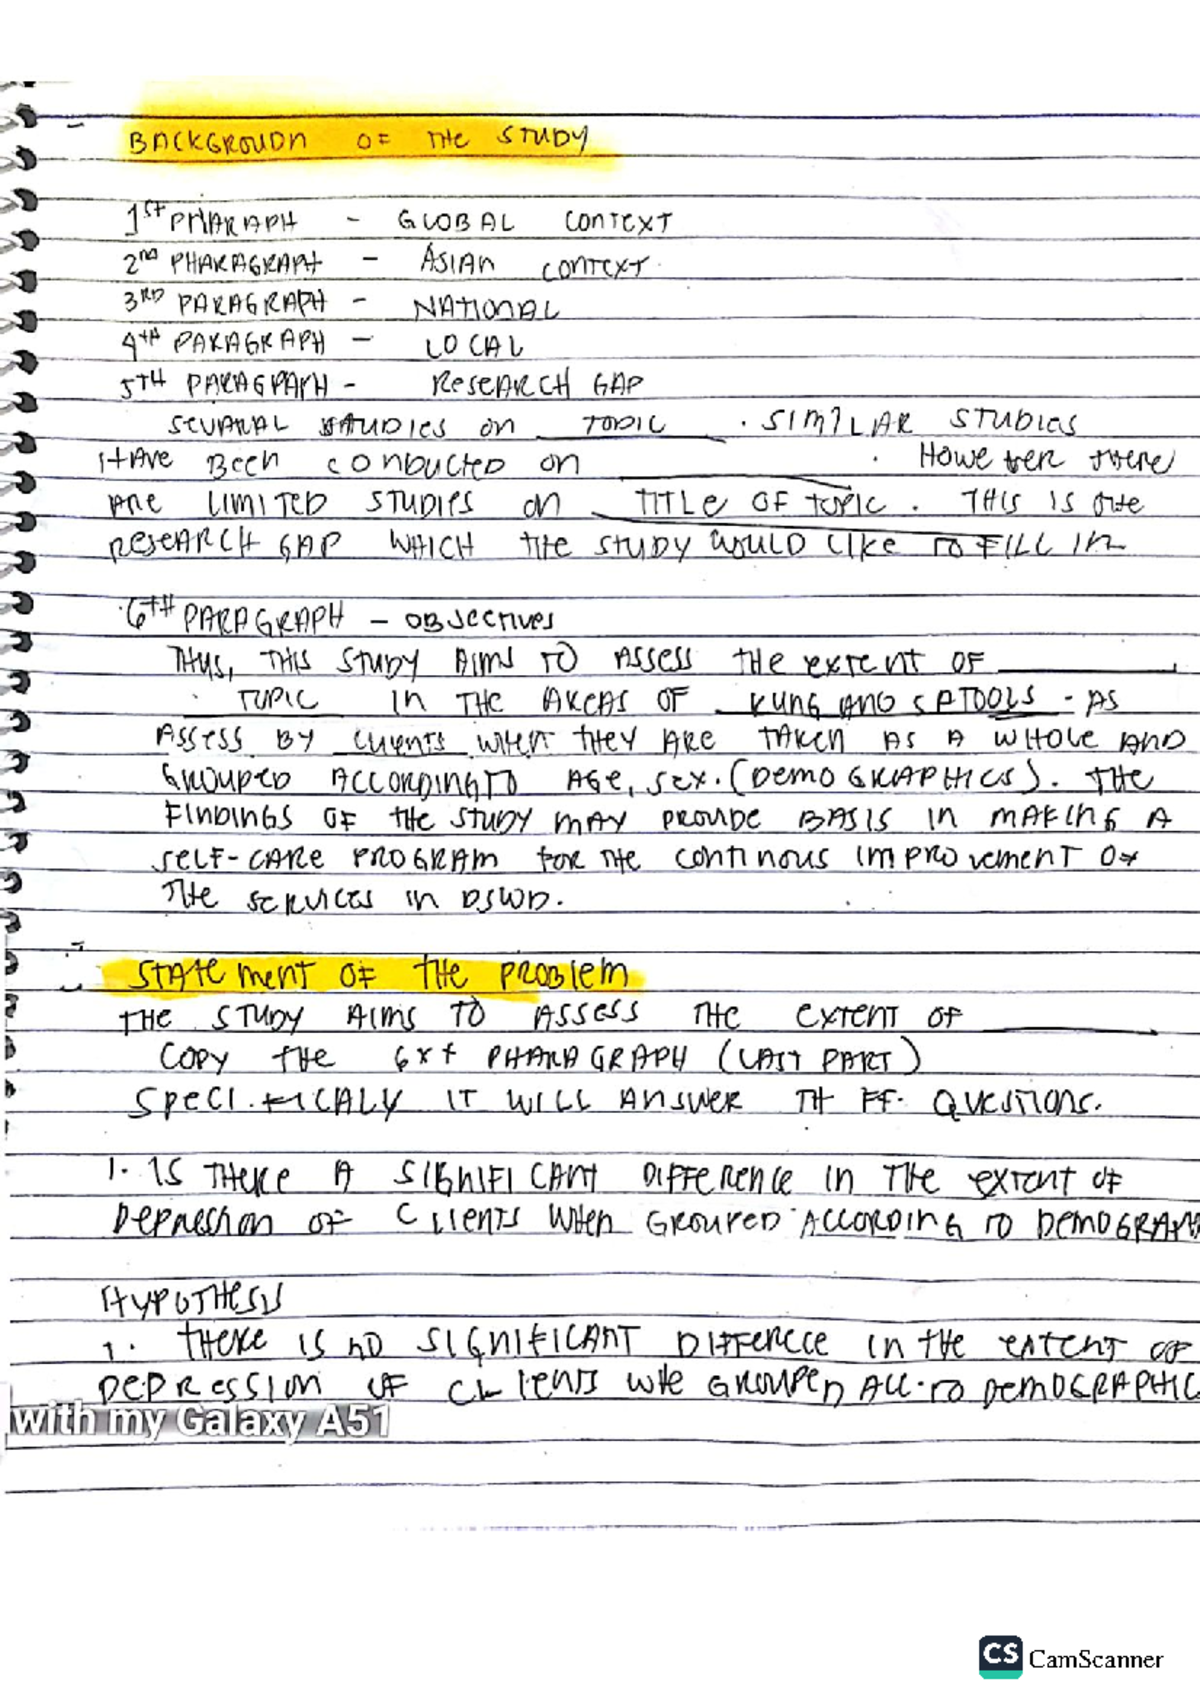 BACKGROUDN OF THE STUDY
1ST PHARAPH - GLOBAL CONTEXT
2ND PHARAGRAPH - ASIAN CONTEXT.
3RD PARAGRAPH - NATIONAL
4TH PARAGRAPH - LOCAL
5TH PARAGRAPH - RESEARCH GAP
SEVARAL STUDIES ON TOPIC . SIMILAR STUDIES
HAVE BEEN CONDUCTED ON ____ . HOWEVER THERE
ARE LIMITED STUDIES ON TITLE OF TOPIC . THIS IS THE
RESEARCH GAP WHICH THE STUDY WOULD LIKE TO FILL IN
6TH PARAGRAPH - OBJECTIVES
THUS, THIS STUDY AIMS TO ASSESS THE EXTENT OF ____
TOPIC IN THE AREAS OF KUNG ANO SA TOOLS - AS
ASSESS BY CLIENTS WHEN THEY ARE TAKEN AS A WHOLE AND
GROUPED ACCORDING TO AGE, SEX. (DEMOGRAPHICS). THE
FINDINGS OF THE STUDY MAY PROVIDE BASIS IN MAKING A
SELF-CARE PROGRAM FOR THE CONTINOUS IMPROVEMENT OF
THE SERVICES IN DSWD.
STATEMENT OF THE PROBLEM
THE STUDY AIMS TO ASSESS THE EXTENT OF ____
COPY THE 6XT PHARAGRAPH (LAST PART)
SPECI.FICALY IT WILL ANSWER TH FF. QUESTIONS.
1. IS THERE A SIGNIFICANT DIFFERENCE IN THE EXTENT OF
DEPRESSION OF CLIENTS WHEN GROUPED ACCORDING TO DEMOGRAPH
HYPOTHESIS
1. THERE IS NO SIGNIFICANT DIFFERECE IN THE EXTENT OF
DEPRESSION OF CLIENTS WHE GROUPED ACC. TO DEMOGRAPHIC
with my Galaxy A51
CS CamScanner